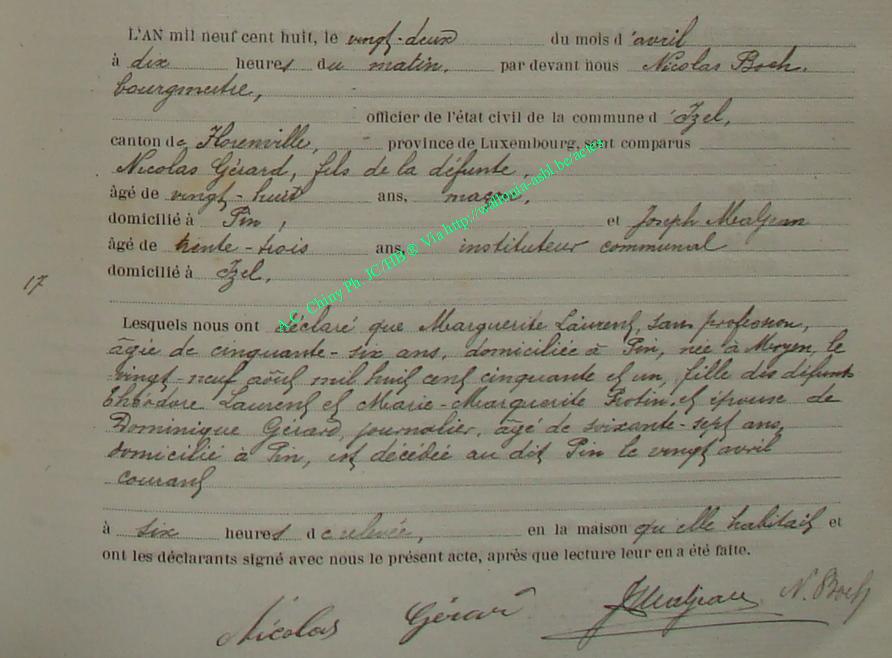 L'AN mil neuf cent huit, le vingt-deux du mois d'avril
à dix heures du matin, par devant nous Nicolas Boch,
bourgmestre,
officier de l'état civil de la commune d'Izel,
canton de Florenville, province de Luxembourg, sont comparus
Nicolas Gérard, fils de la défunte,
âgé de vingt-huit ans, maçon,
domicilié à Pin, et Joseph Maljean
âgé de trente-trois ans, instituteur communal
domicilié à Izel,
17
Lesquels nous ont déclaré que Marguerite Laurent, sans profession,
âgée de cinquante-six ans, domiciliée à Pin, née à Moyen, le
vingt-neuf août mil huit cent cinquante et un, fille des défunts
Théodore Laurent et Marie-Marguerite et épouse de
Dominique Gérard, journalier, âgé de soixante-sept ans,
domicilié à Pin, est décédée au dit Pin le vingt avril
courant
à six heures de relevée, en la maison qu'elle habitait et
ont les déclarants signé avec nous le présent acte, après que lecture leur en a été faite.
Nicolas Gérard JMaljean N. Boch
A.C. Chiny Ph. JC/HB ® Via http://wallonia-asbl.be/actes